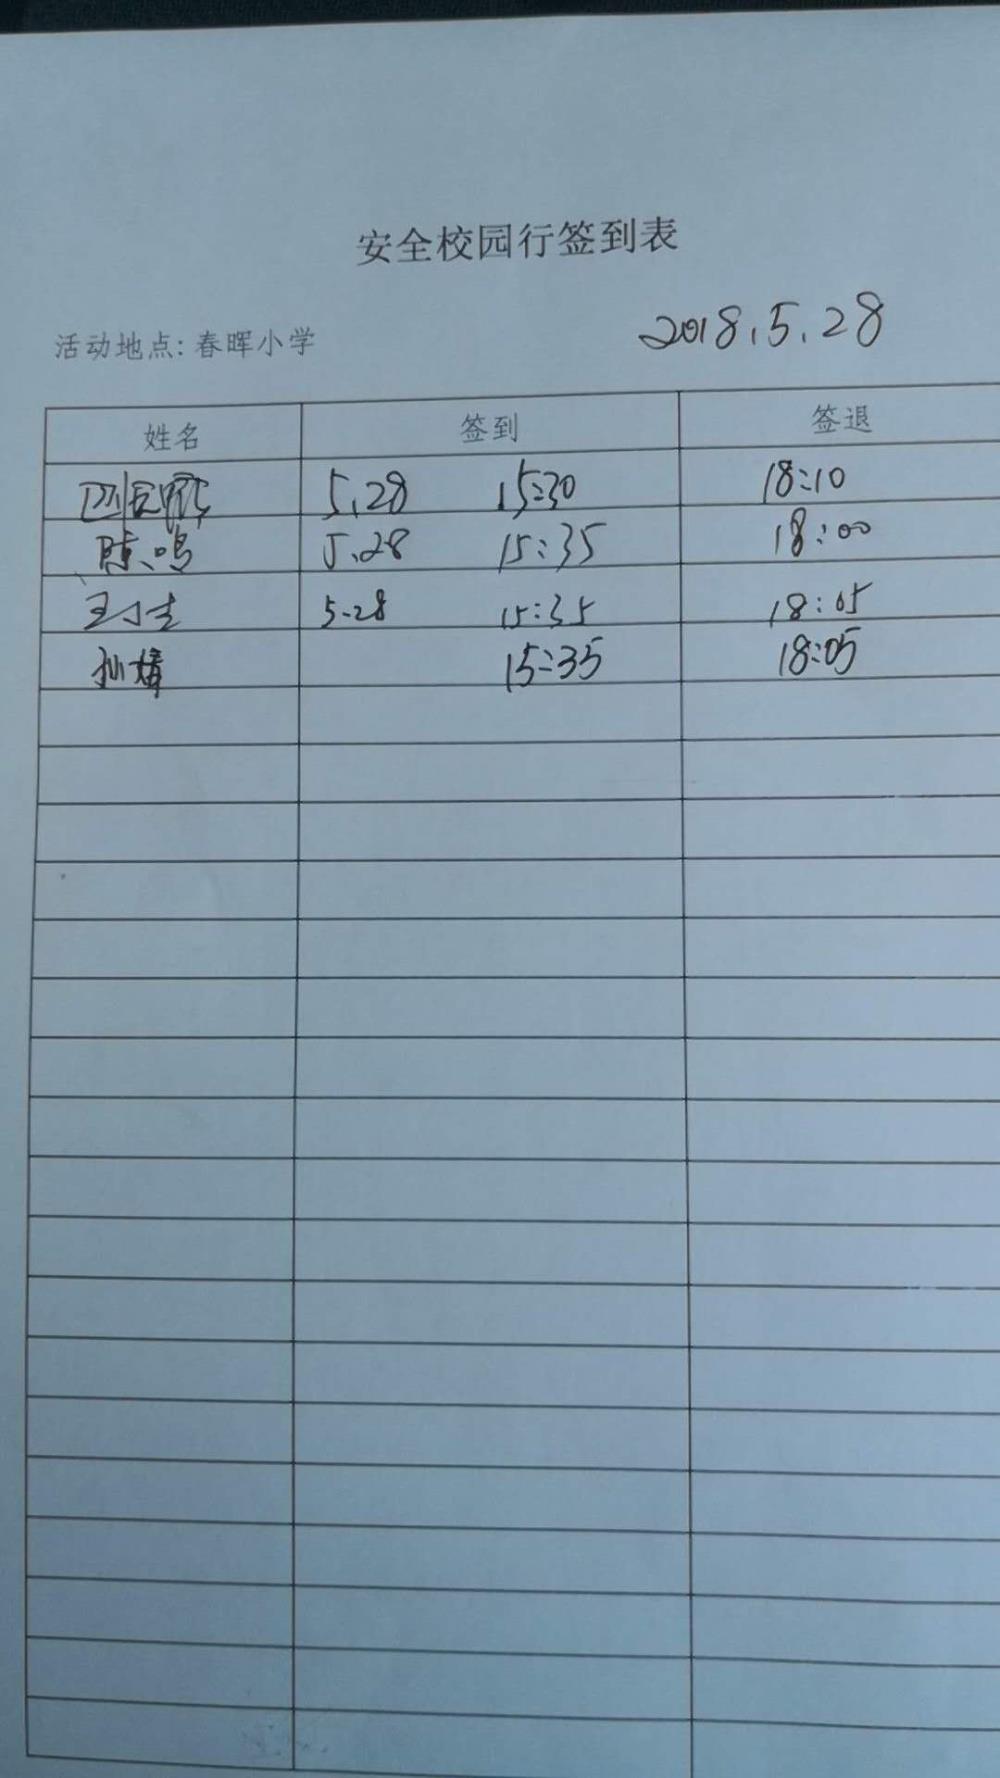 安全校园行签到表
2018.5.28
活动地点: 春晖小学
姓名 签到 签退
5.28 15:30 18:10
陈鸣 5.28 15:35 18:00
王小生 5.28 15:35 18:05
孙婧 15:35 18:05